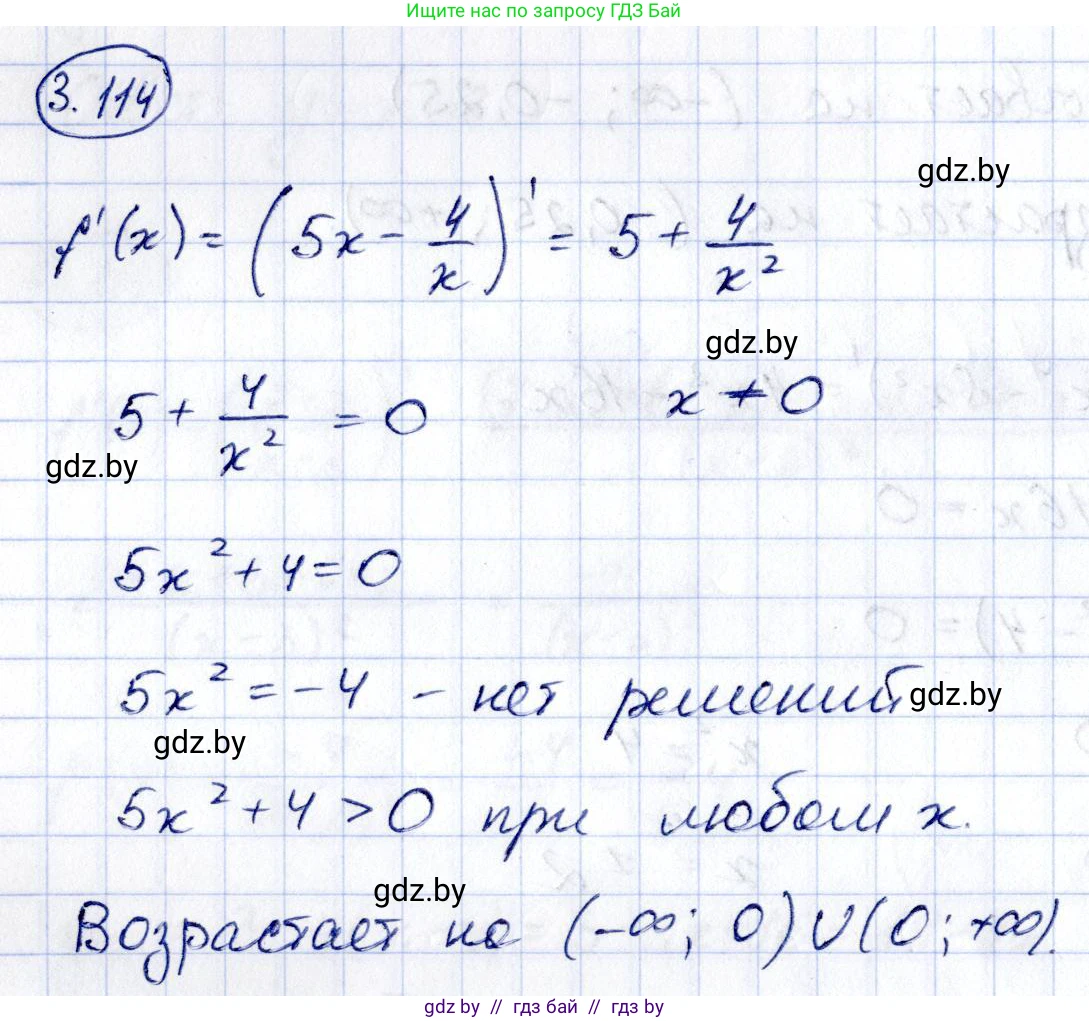 Ищите нас по запросу ГДЗ Бай
3.114
gdz.by
f'(x) = (5x - 4/x)' = 5 + 4/x²
gdz.by
5 + 4/x² = 0    x ≠ 0
gdz.by
5x² + 4 = 0
5x² = -4 - нет решений
gdz.by
gdz.by
5x² + 4 > 0 при любом x.
gdz.by
Возрастает на (-∞; 0) ∪ (0; +∞).
gdz.by // гдз бай // гдз by